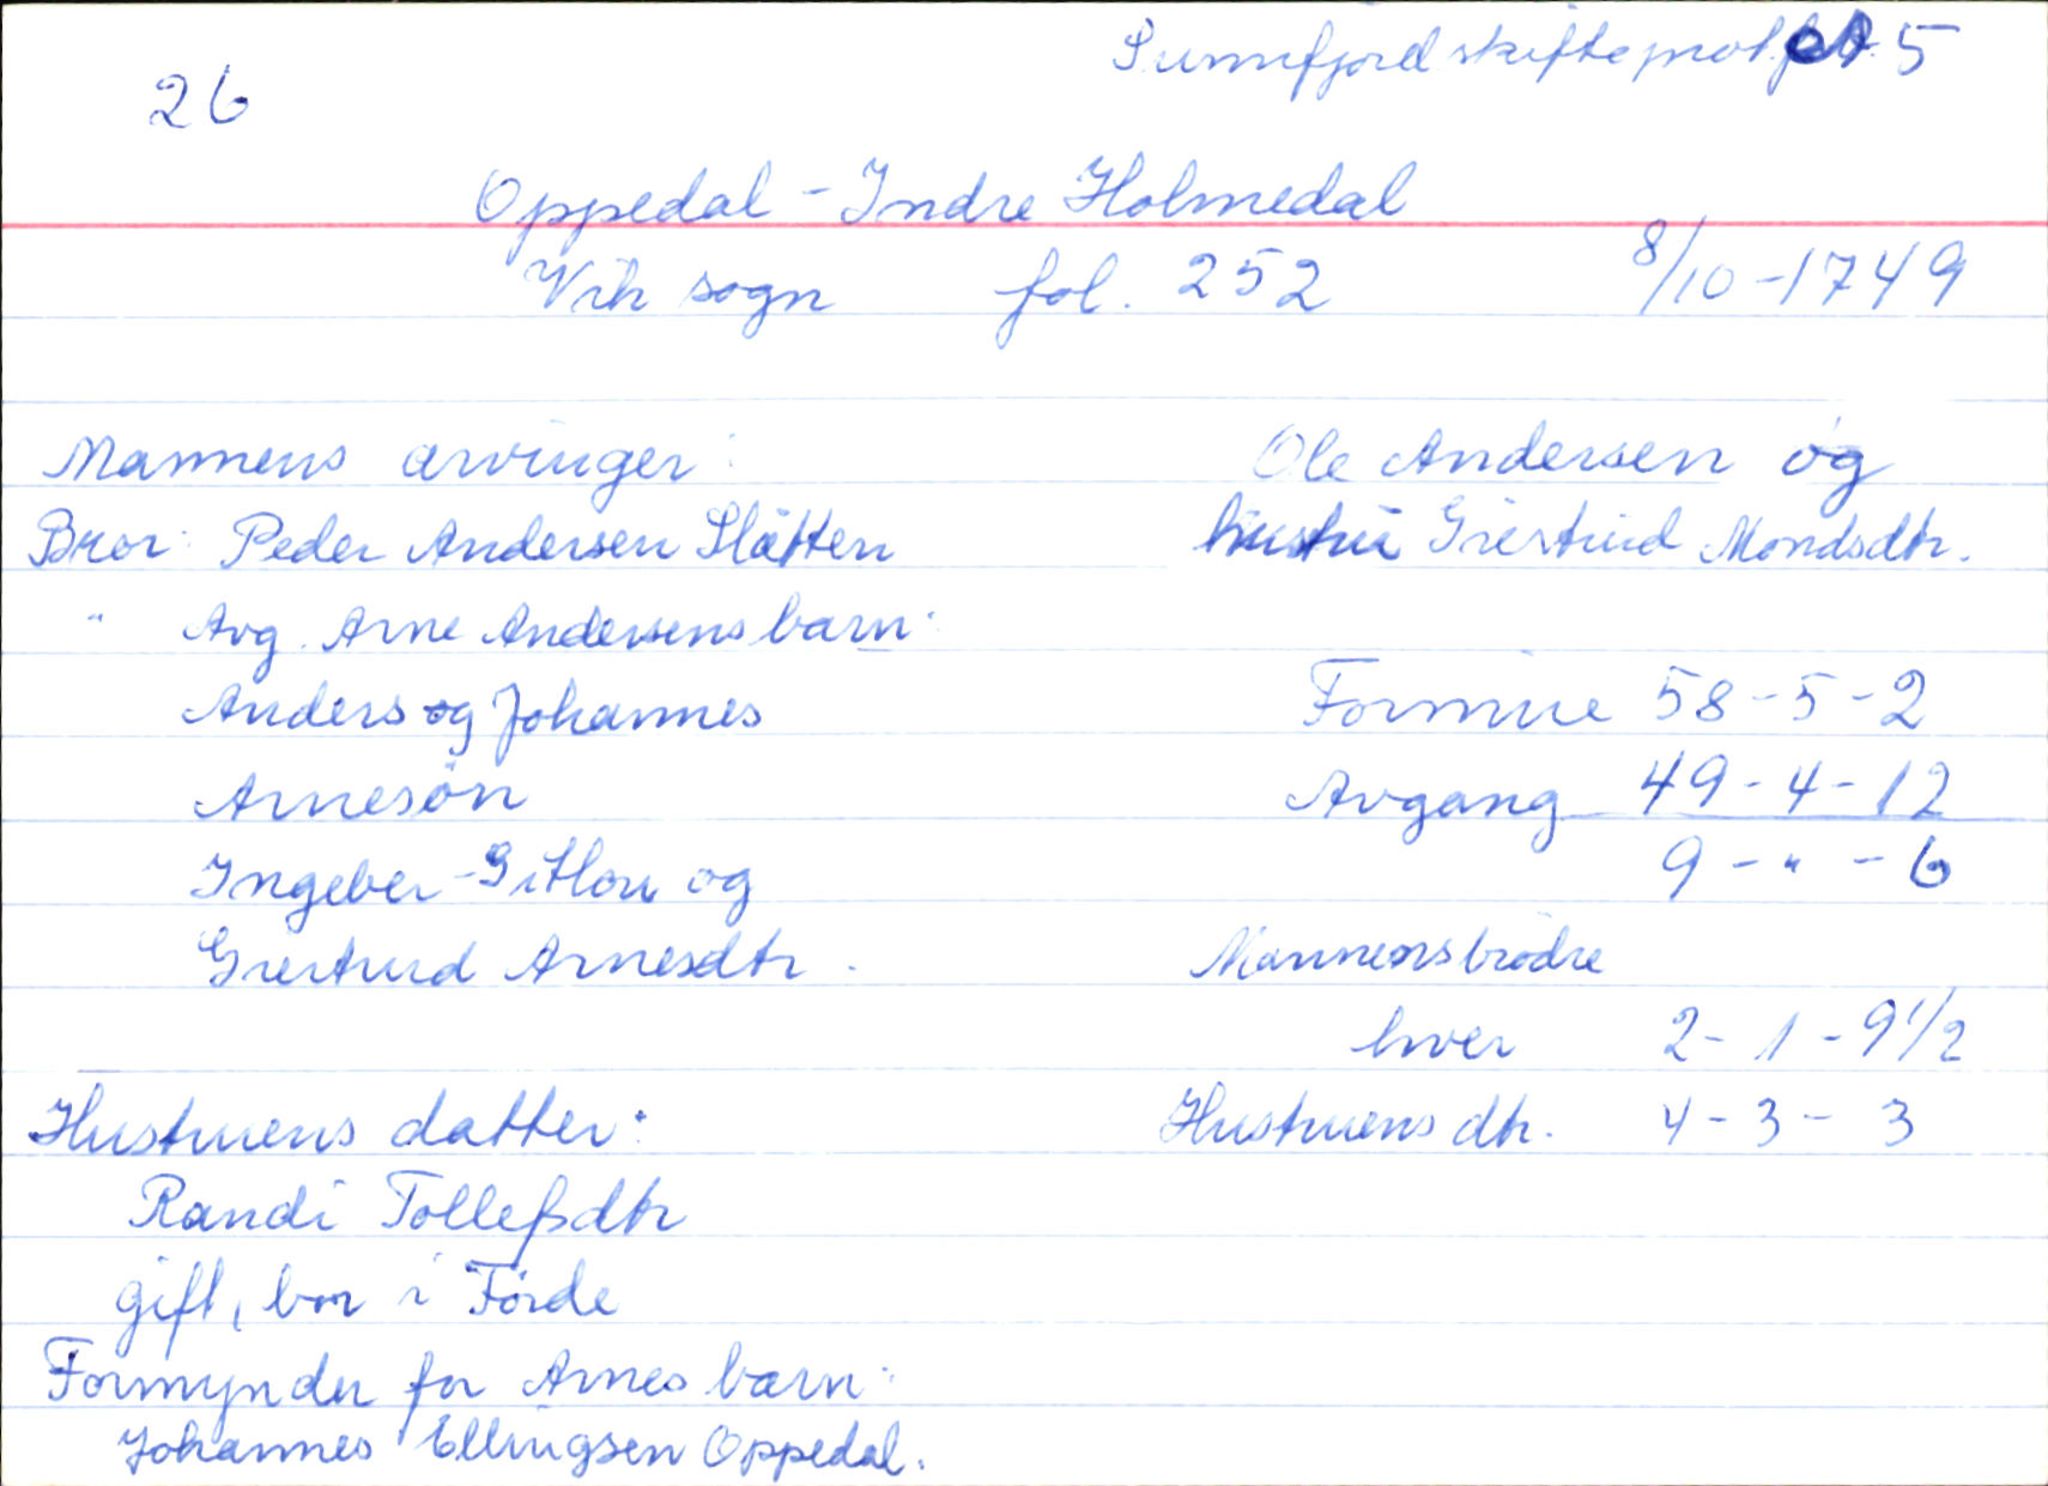 Sunnfjord skifteprot. 5
26
Oppedal - Indre Holmedal
Vik sogn fol. 252 8/10-1749
Mannens arvinger:
Bror: Peder Andersen Slåtten
" Avg. Arne Andersens barn:
Anders og Johannes
Arnesön
Ingeber - Sithou og
Giertrud Arnesdtr.
Hustruens datter:
Randi Tollefsdtr
gift, bor i Förde
Formynder for Arnes barn:
Johannes Ellingsen Oppedal.
Ole Andersen og
hustru Giertrud Mondsdtr.
Formue 58-5-2
Avgang 49-4-12
9-"-6
Mannens brödre
hver 2-1-9 1/2
Hustruens dtr. 4-3-3